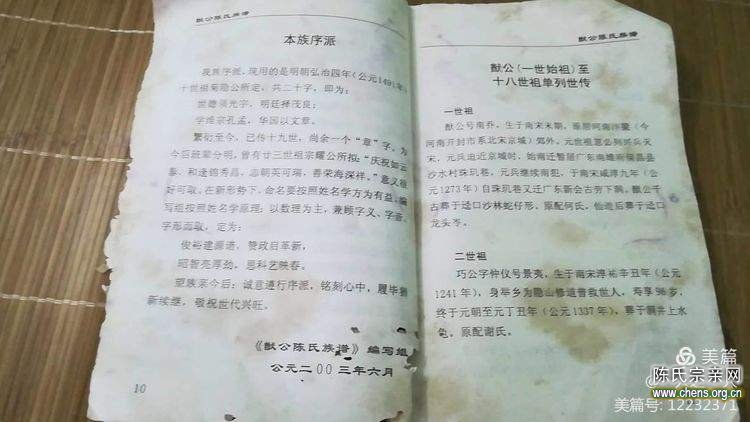 猷公陈氏族谱
本族序派
我族序派，现用的是明朝弘治四年（公元1491年）
十世祖菊隐公所定，共二十字，即为：
世德须光宇，明廷择茂良；
学维宗孔孟，华国以文章。
繁衍至今，已传十九世，尚余一个“章”字，为
今后班辈分明，曾有廿三世祖宗耀公所拟：“庆祝如云
泰、和逢锦秀昌，志朝英可瑞，善荣海深祥。”意义很
好可取。在新形势下，命名要按照姓名学方为有益。编
写组按照姓名学原理：以数理为主，兼顾字义、字音、
字形而取，定为：
俊裕建源通，赞政启革新，
昭智亮厚劲，思科艺映春。
望族亲今后：诚意进行序派，铭刻心中，履毕
新续继，敬祝世代兴旺。
《猷公陈氏族谱》编写组
公元二00三年六月
10
猷公陈氏族谱
猷公（一世始祖）至
十八世祖单列世传
一世祖
猷公号南乔，生于南宋末期，原居河南汴梁（今
河南开封市系北宋京城）郊外。元世祖忽必列兴兵灭
宋，元兵迫近京城时，始南迁暂居广东南雄府保昌县
沙水村珠玑巷。元兵继续南犯，于南宋咸淳九年（公
元1273年）自珠玑巷又迁广东新会古劳下
古葬于迳口沙林蛇仔形，原配何氏，仙逝后葬于迳口
龙头岑。
二世祖
巧公字仲仪号景夷，生于南宋淳祐辛丑年（公元
1241年），身举乡为隐山修道普救世人，寿享96岁，
终于元朝至元丁丑年（公元1337年），葬于铜井上水
龟。原配谢氏。
美篇
陈氏宗亲网
www.chens.org.cn
美篇号: 12232371